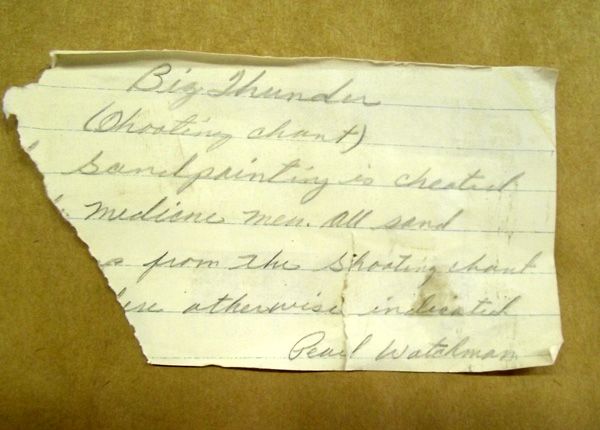 Big Thunder
(Shooting chant)
Sandpainting is cheated
medicine men. All sand
from the Shooting chant
otherwise indicated
Pearl Watchman